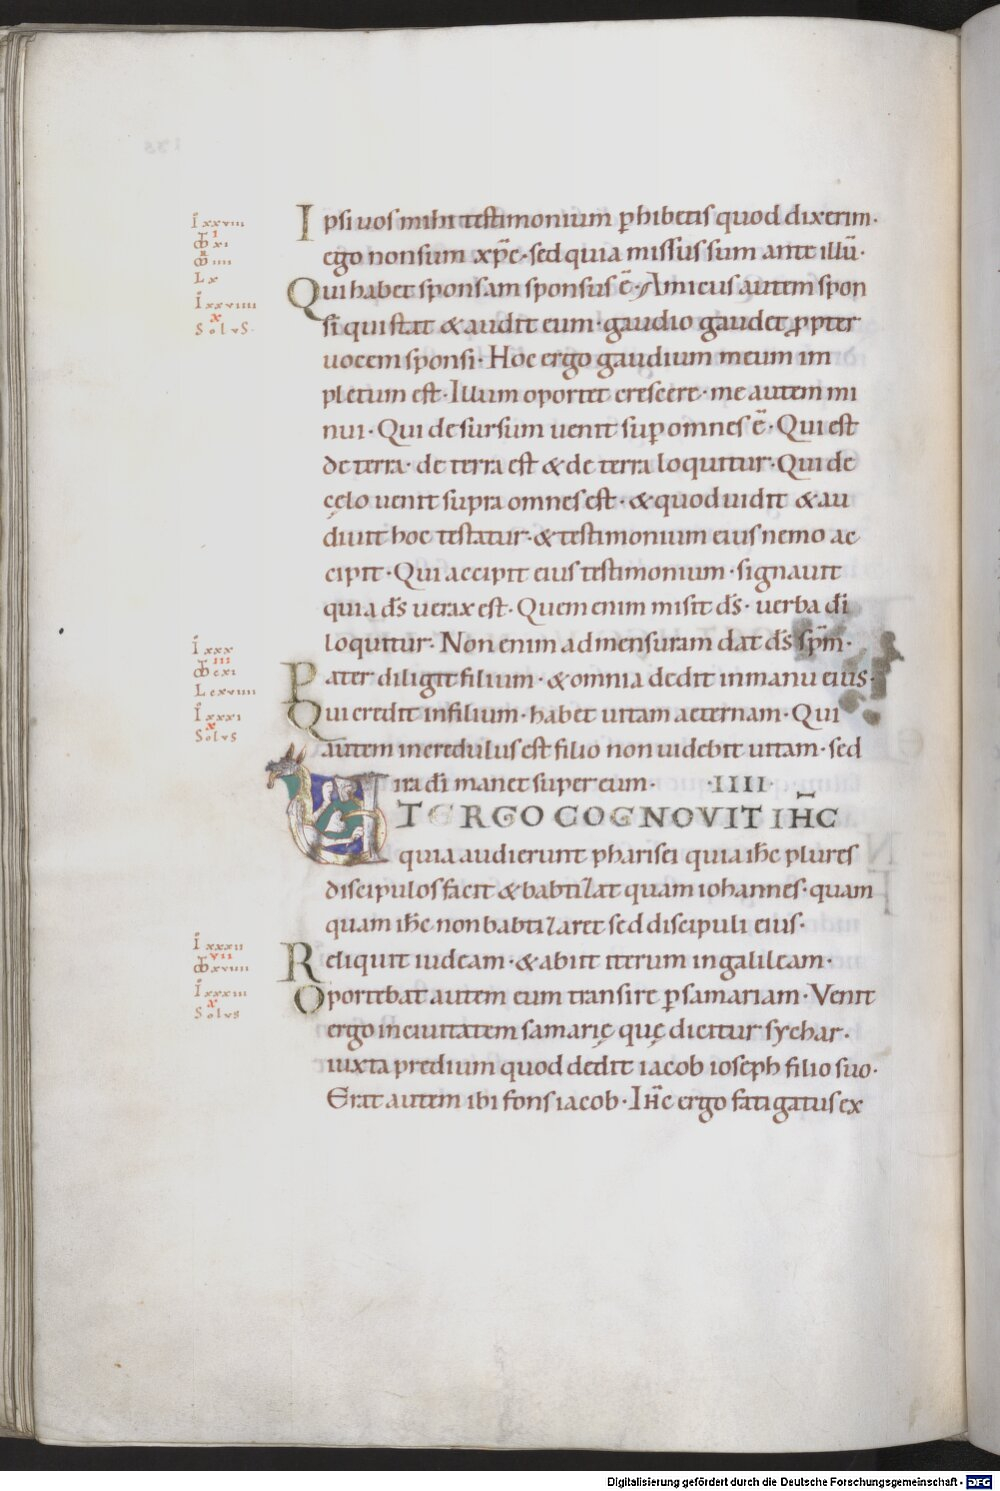 Ipsi uos mihi testimonium ꝑhibetis quod dixerim·
ego non sum xp̅c· sed quia missus sum ante illū·
Qui habet sponsam sponsus ē· Amicus autem spon
si qui stat & audit eum· gaudio gaudet ꝓpter
uocem sponsi· Hoc ergo gaudium meum im
pletum est· Illum oportet crescere· me autem mi
nui· Qui desursum uenit suꝑ omnes ē· Qui est
de terra· de terra est & de terra loquitur· Qui de
cęlo uenit supra omnes est· & quod uidit & au
diuit hoc testatur· & testimonium eius nemo ac
cipit· Qui accipit eius testimonium· signauit
quia d̅s uerax est· Quem enim misit d̅s· uerba d̅i
loquitur· Non enim ad mensuram dat d̅s sp̅m·
Pater diligit filium· & omnia dedit in manu eius·
Qui credit in filium· habet uitam aeternam· Qui
autem incredulus est filio non uidebit uitam· sed
ira d̅i manet super eum· ·IIII·
UT ERGO COGNOVIT IH̅C
quia audierunt pharisei quia ih̅c plures
discipulos facit & babtizat quam iohannes· quam
quam ih̅c non babtizaret sed discipuli eius·
Reliquit iudeam· & abiit iterum in galileam·
Oportebat autem eum transire ꝑ samariam· Venit
ergo in ciuitatem samarię quę dicitur sychar·
iuxta predium quod dedit iacob ioseph filio suo·
Erat autem ibi fons iacob· Ih̅c ergo fatigatus ex
I xxviii
i
xi
iiii
L x
I xxviiii
x
Solvs·
I xxx
iii
cxi
L cxviiii
I xxxi
x
Solvs
I xxxii
vii
xviii
I xxxiii
x
Solvs
Digitalisierung gefördert durch die Deutsche Forschungsgemeinschaft - DFG